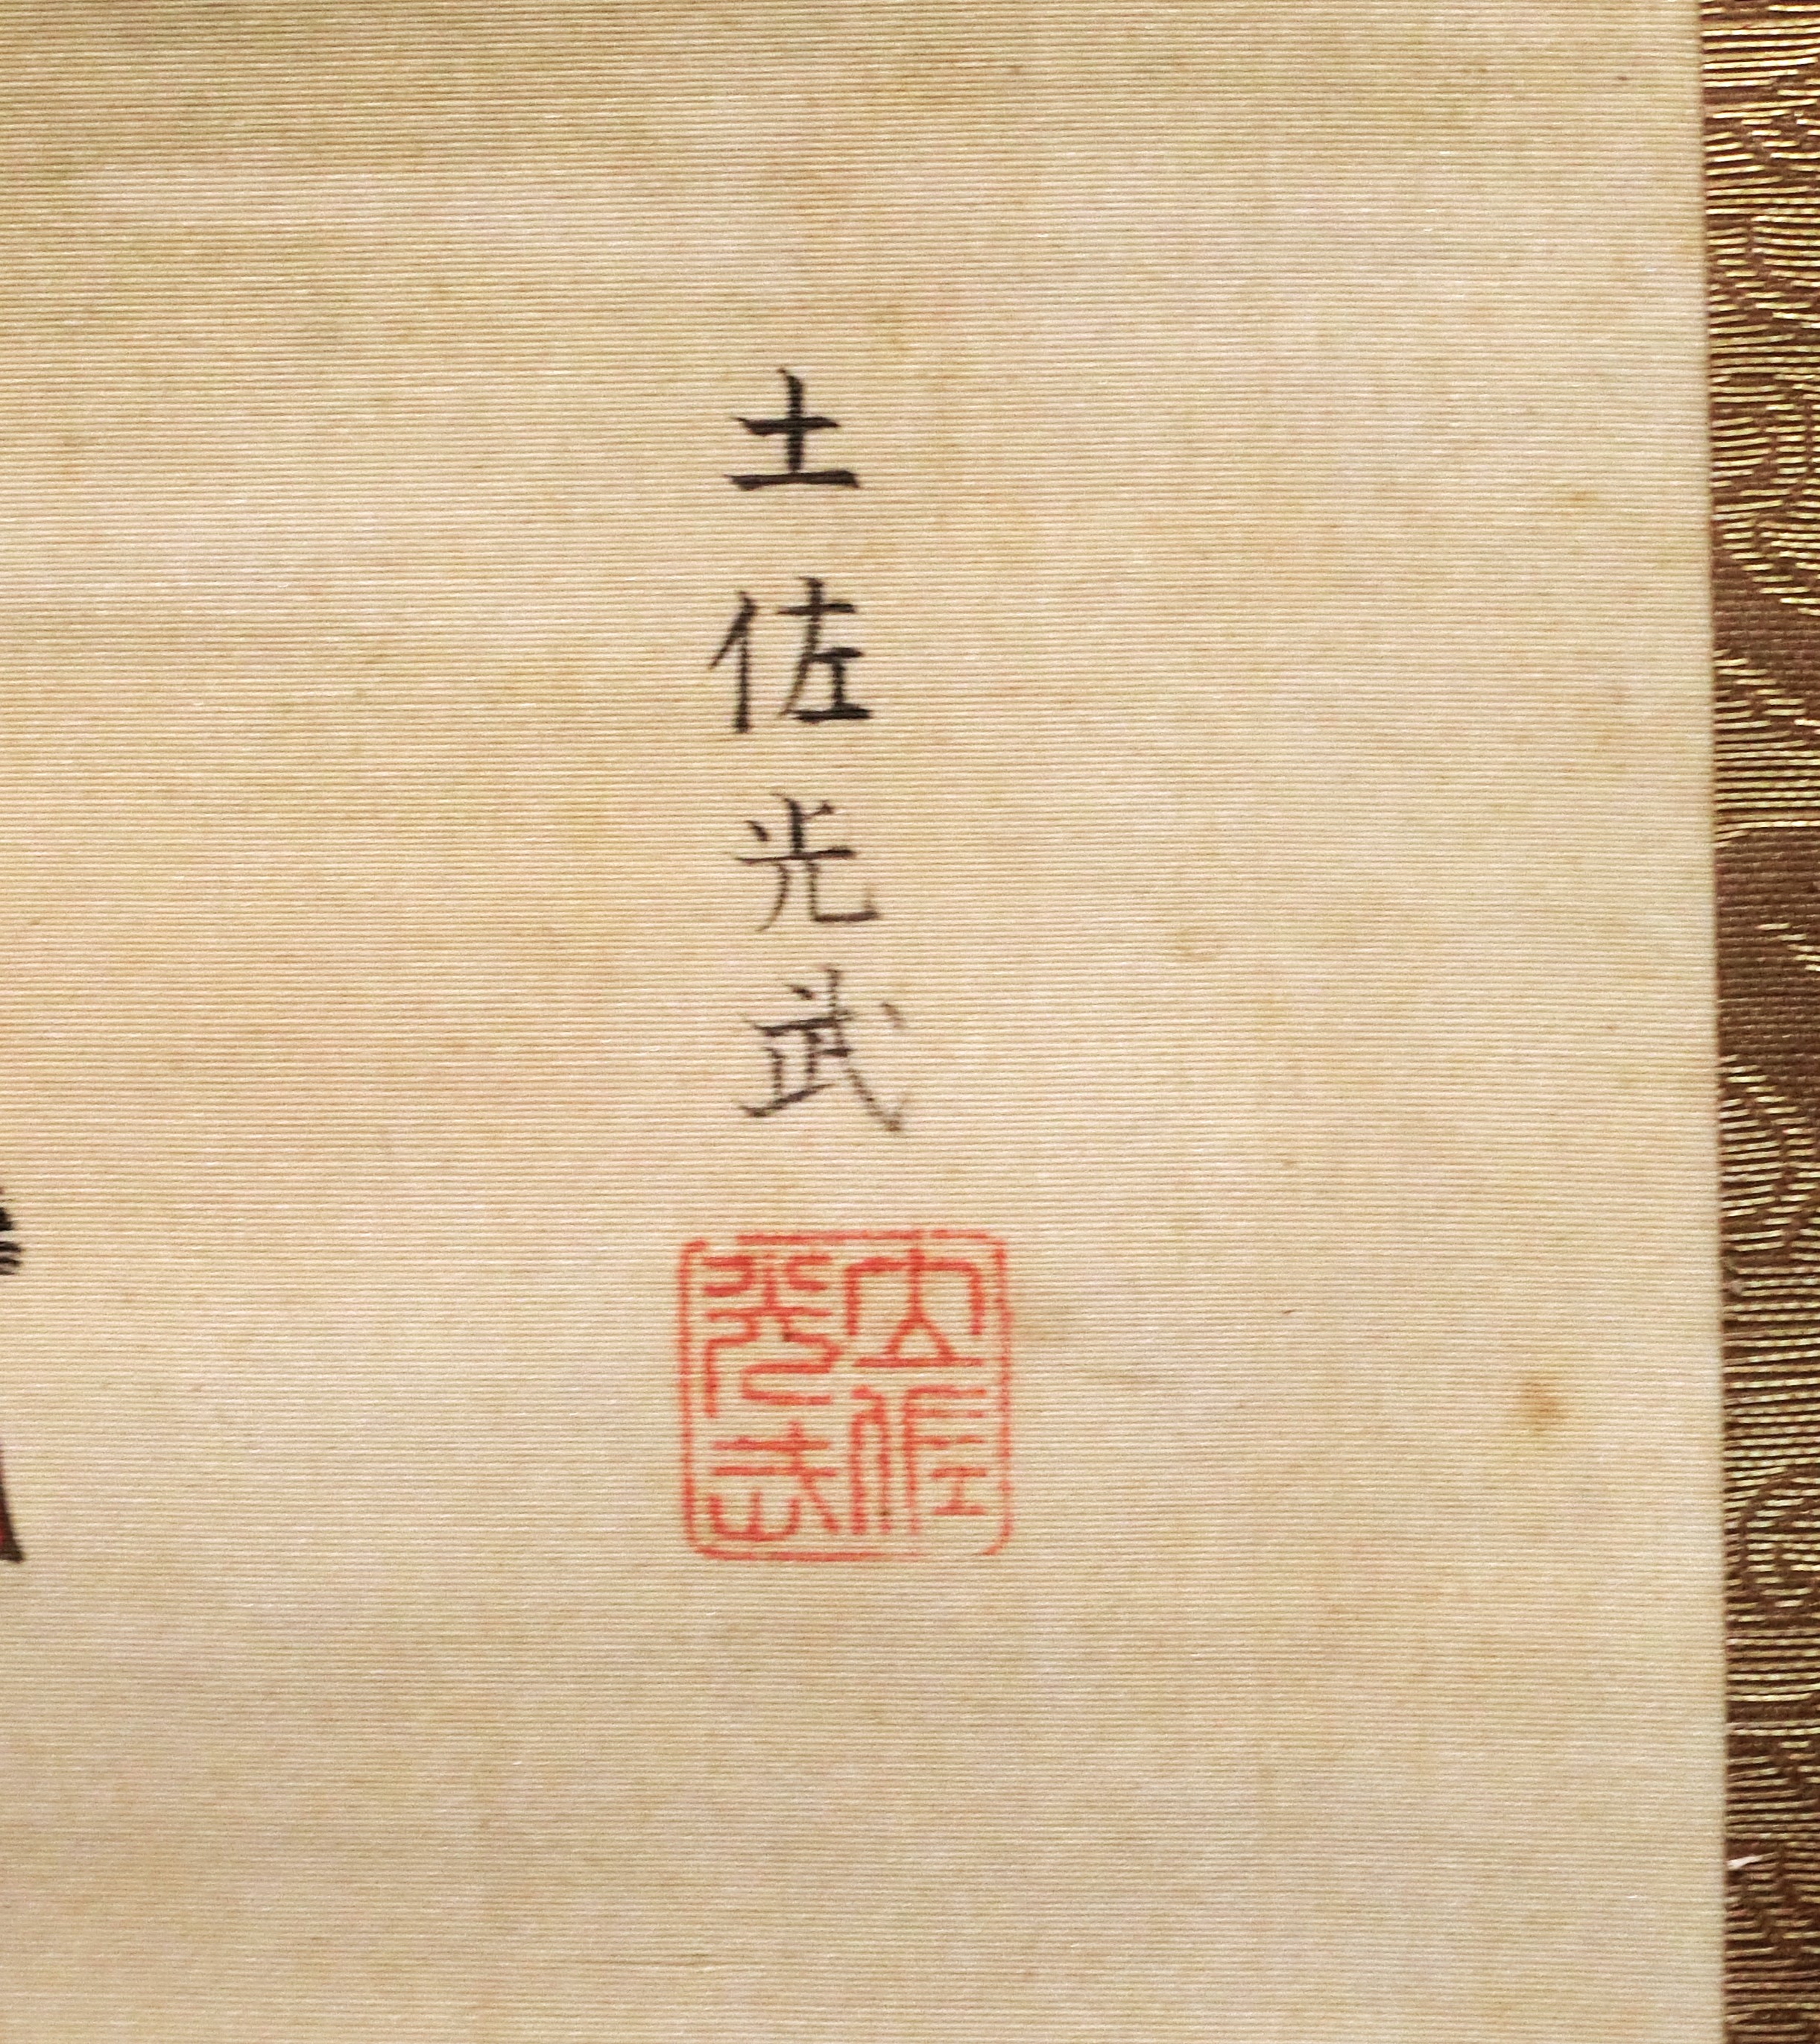 土佐光武
土佐
光武